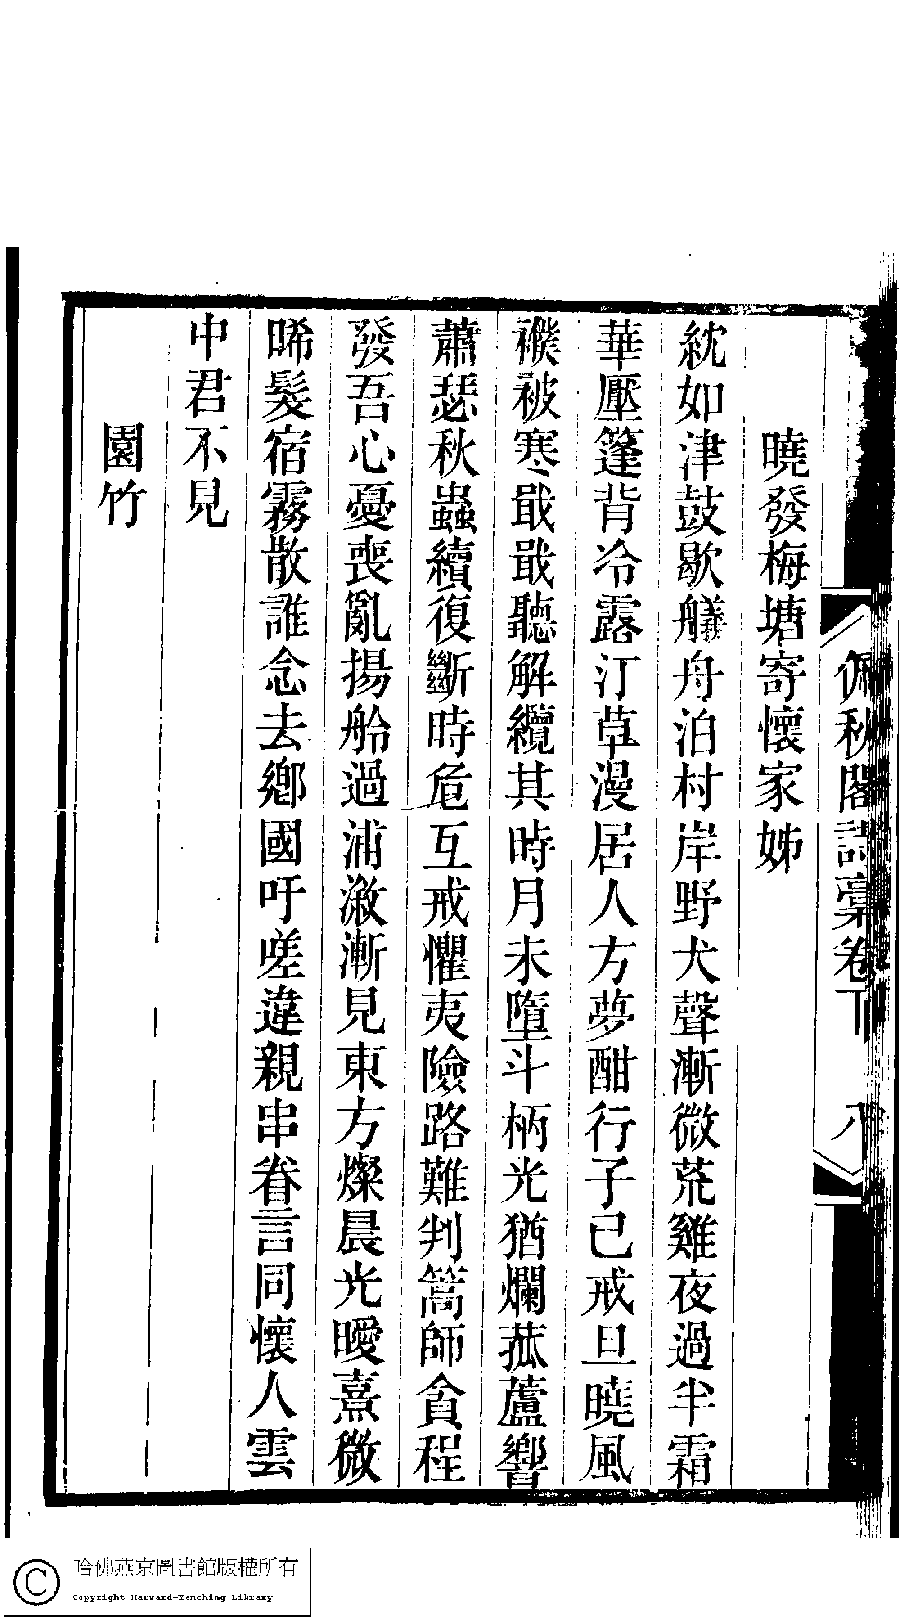 佩秋閣詩稾卷下 八
曉發梅塘寄懷家姊
紞如津鼓歇艤舟泊村岸野犬聲漸微荒雞夜過半霜
華壓篷背冷露汀草漫居人方夢酣行子已戒旦曉風
襆被寒戢戢聽解纜其時月未墮斗柄光猶爛菰蘆響
蕭瑟秋蟲續復斷時危互戒懼夷險路難判篙師貪程
發吾心憂喪亂揚舲過浦漵漸見東方燦晨光曖熹微
晞髮宿霧散誰念去鄉國吁嗟違親串眷言同懷人雲
中君不見
園竹
哈佛燕京圖書館版權所有
Copyright Harvard-Yenching Library